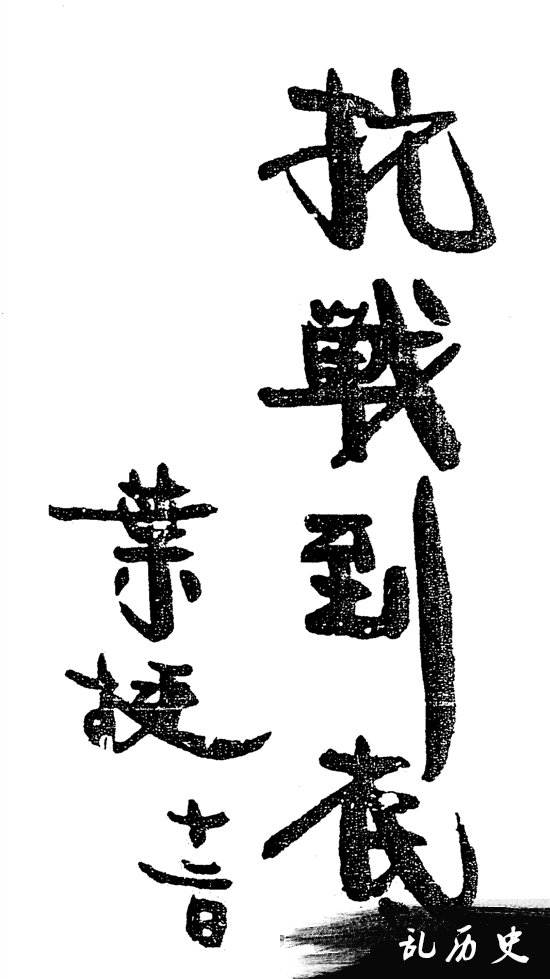 抗戰到底
葉挺
十二日
乱历史